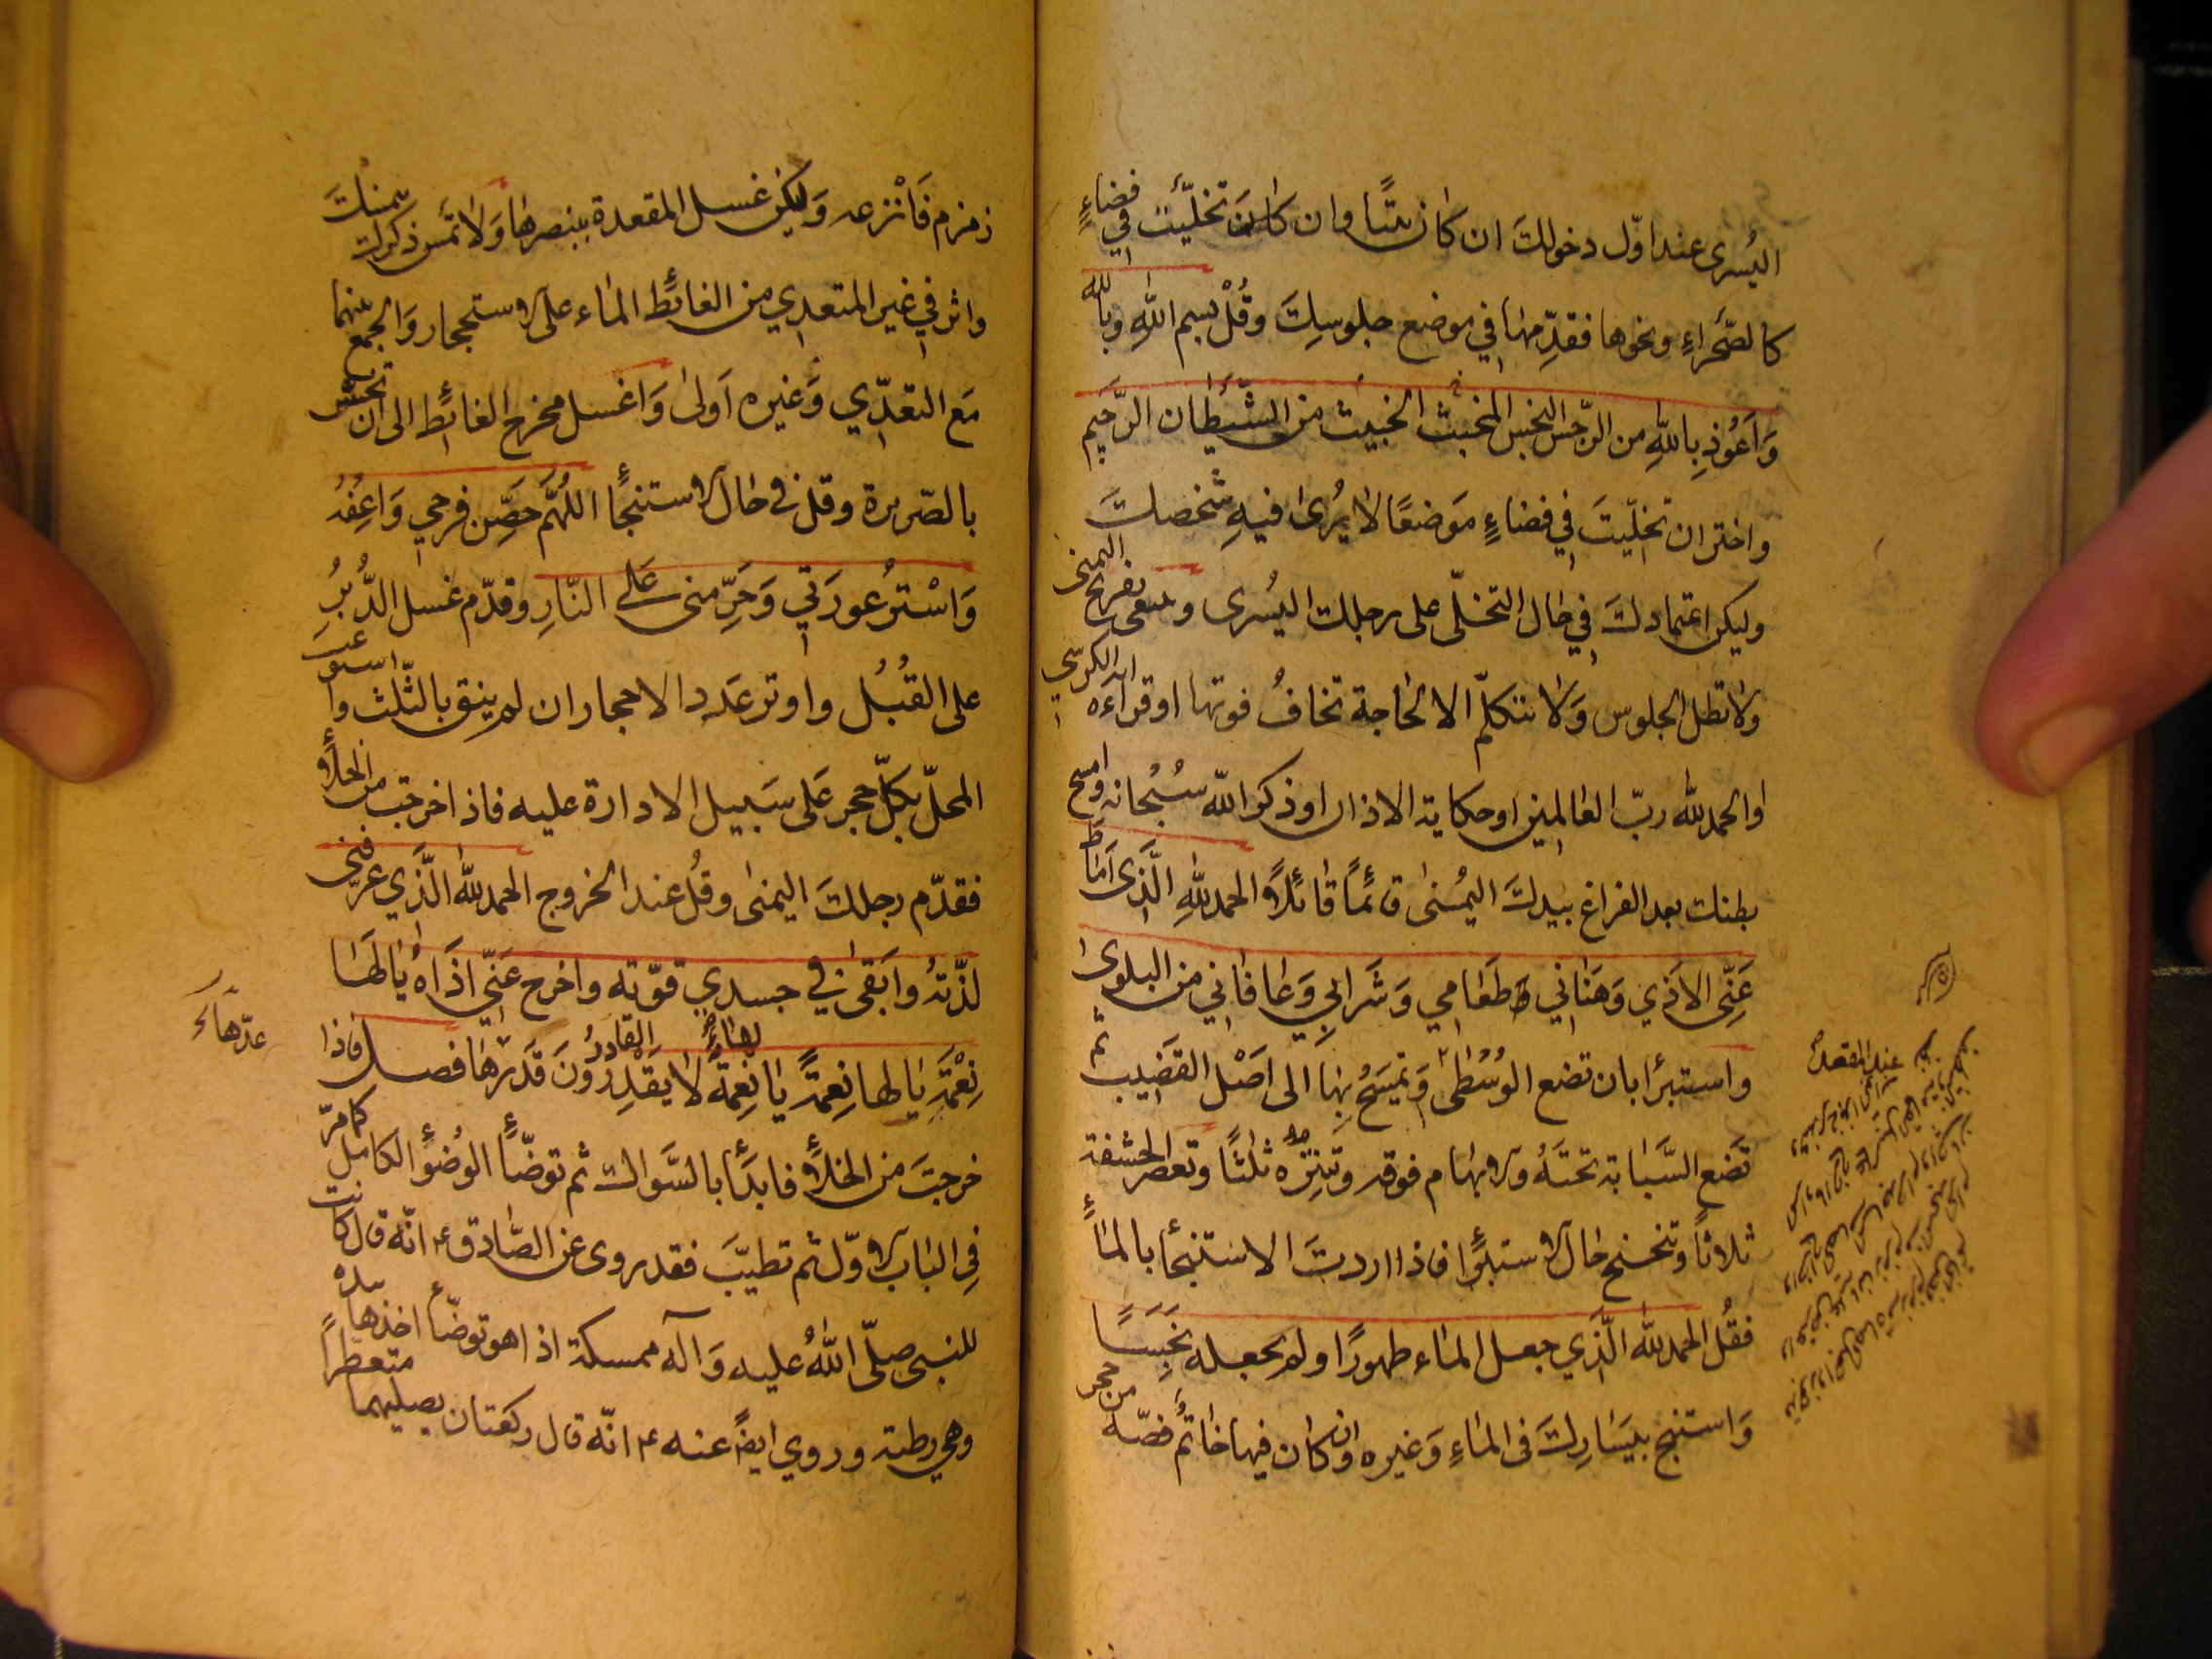 اليُسرى عند اوّل دخولك ان كان بيتًا وان كان تخلّيت في فضاءٍ
كالصَّحراءِ ونحوها فقدّمها في موضع جلوسك وقُلْ بسم اللهِ وباللّه
وَاَعُوذ بِاللّهِ من الرّجس النجس المخبث الخبيث من الشّيطان الرّجيم
واختر ان تخلّيتَ في فضاءٍ مَوضعًا لا يُرى فيهِ شخصك
وليكن اعتمادك في حال التخلّي على رجلك اليُسرى و تفريج اليمنى
ولا تطل الجلوس وَلا تتكلّم الا لحاجة تخافُ فوتها او قراءة اية الكرسي
او الحمد للّه ربّ العالمين او حكاية الاذان او ذكر اللّه سُبْحانه وامسح
بطنك بعد الفراغ بيدك اليمُنى قائمًا قائلًا الحمد للّهِ الّذى اَماطَ
عَنّى الاذي وَهَنّاني طَعامي وَشَرابي وَعافاني من البلوى
واستبرأ بان تضع الوُسْطى وَتمسَحُ بِها الى اصَل القَضيب ثم
تَضع السَّبابة تحتَهُ والابهام فوقه وتنتره ثلثًا وتعصر الحشفة
ثلاثًا وتنحنح حال الاستبرًأ فاذا اردتَ الاستنجًأ بالماءٍ
فقُل الحمد للّه الّذي جعل الماء طهورًا ولم يجعله نَجَسًا
وَاستنج بيَسارك فى الماءِ وَغيره وان كان فيها خاتمٌ فصّه من حجر
عند المقعدة
زمزم فَانْزعه وَليكن غسل المقعدة ببنصرها وَلا تمَس ذكرك بيمينك
واثر في غير المتعدي من الغائط الماء على الاستجمار وَالجمع بينهما
مَع التعدّي وَغيره اَولى وَاغسل مخرج الغائط الى ان تحسّ
بالصّريرة وقل في حال الاستنجًأ اللّهُمَّ حَصِّن فرجي وَاعِفُّهُ
وَاسْترُ عورَتي وَحَرِّمنى عَلى النّارِ وقدّم غسل الدُّبُرُ
على القبُل واوتر عَدد الاحجار ان لم ينق بالثّلث واستوعب
المحلّ بكلّ حجر عَلى سَبيل الادارة عليه فاذا خرجت من الخلاءِ
فقدّم رجلكَ اليمنى وقُل عند الخروج الحمد للّه الَّذي عرّفنى
لذّتهُ وابَقى في جسدي قوّته واخرج عَنّي اذاهُ يالَها
نِعْمَةً يالها نِعمَةً يا نعِمَةً لا يقَدِرُ القادرُونَ قَدَرها فصل فاذا
خرجتَ من الخلأ فابدَأ بالسَّواك ثم توضّأ الوُضوًأ الكامل كما مرّ
في الباب الاوّل ثم تطيّبَ فقد روى عن الصّادق ع انّه قال كانت
للنبى صلّى اللهُ عليه وَآله ممسكة اذا هو توضّأ اخذها بيده
وهي رطبة وروي ايضًا عنه ع انّه قال ركعتان يصليهما متعطّرًا